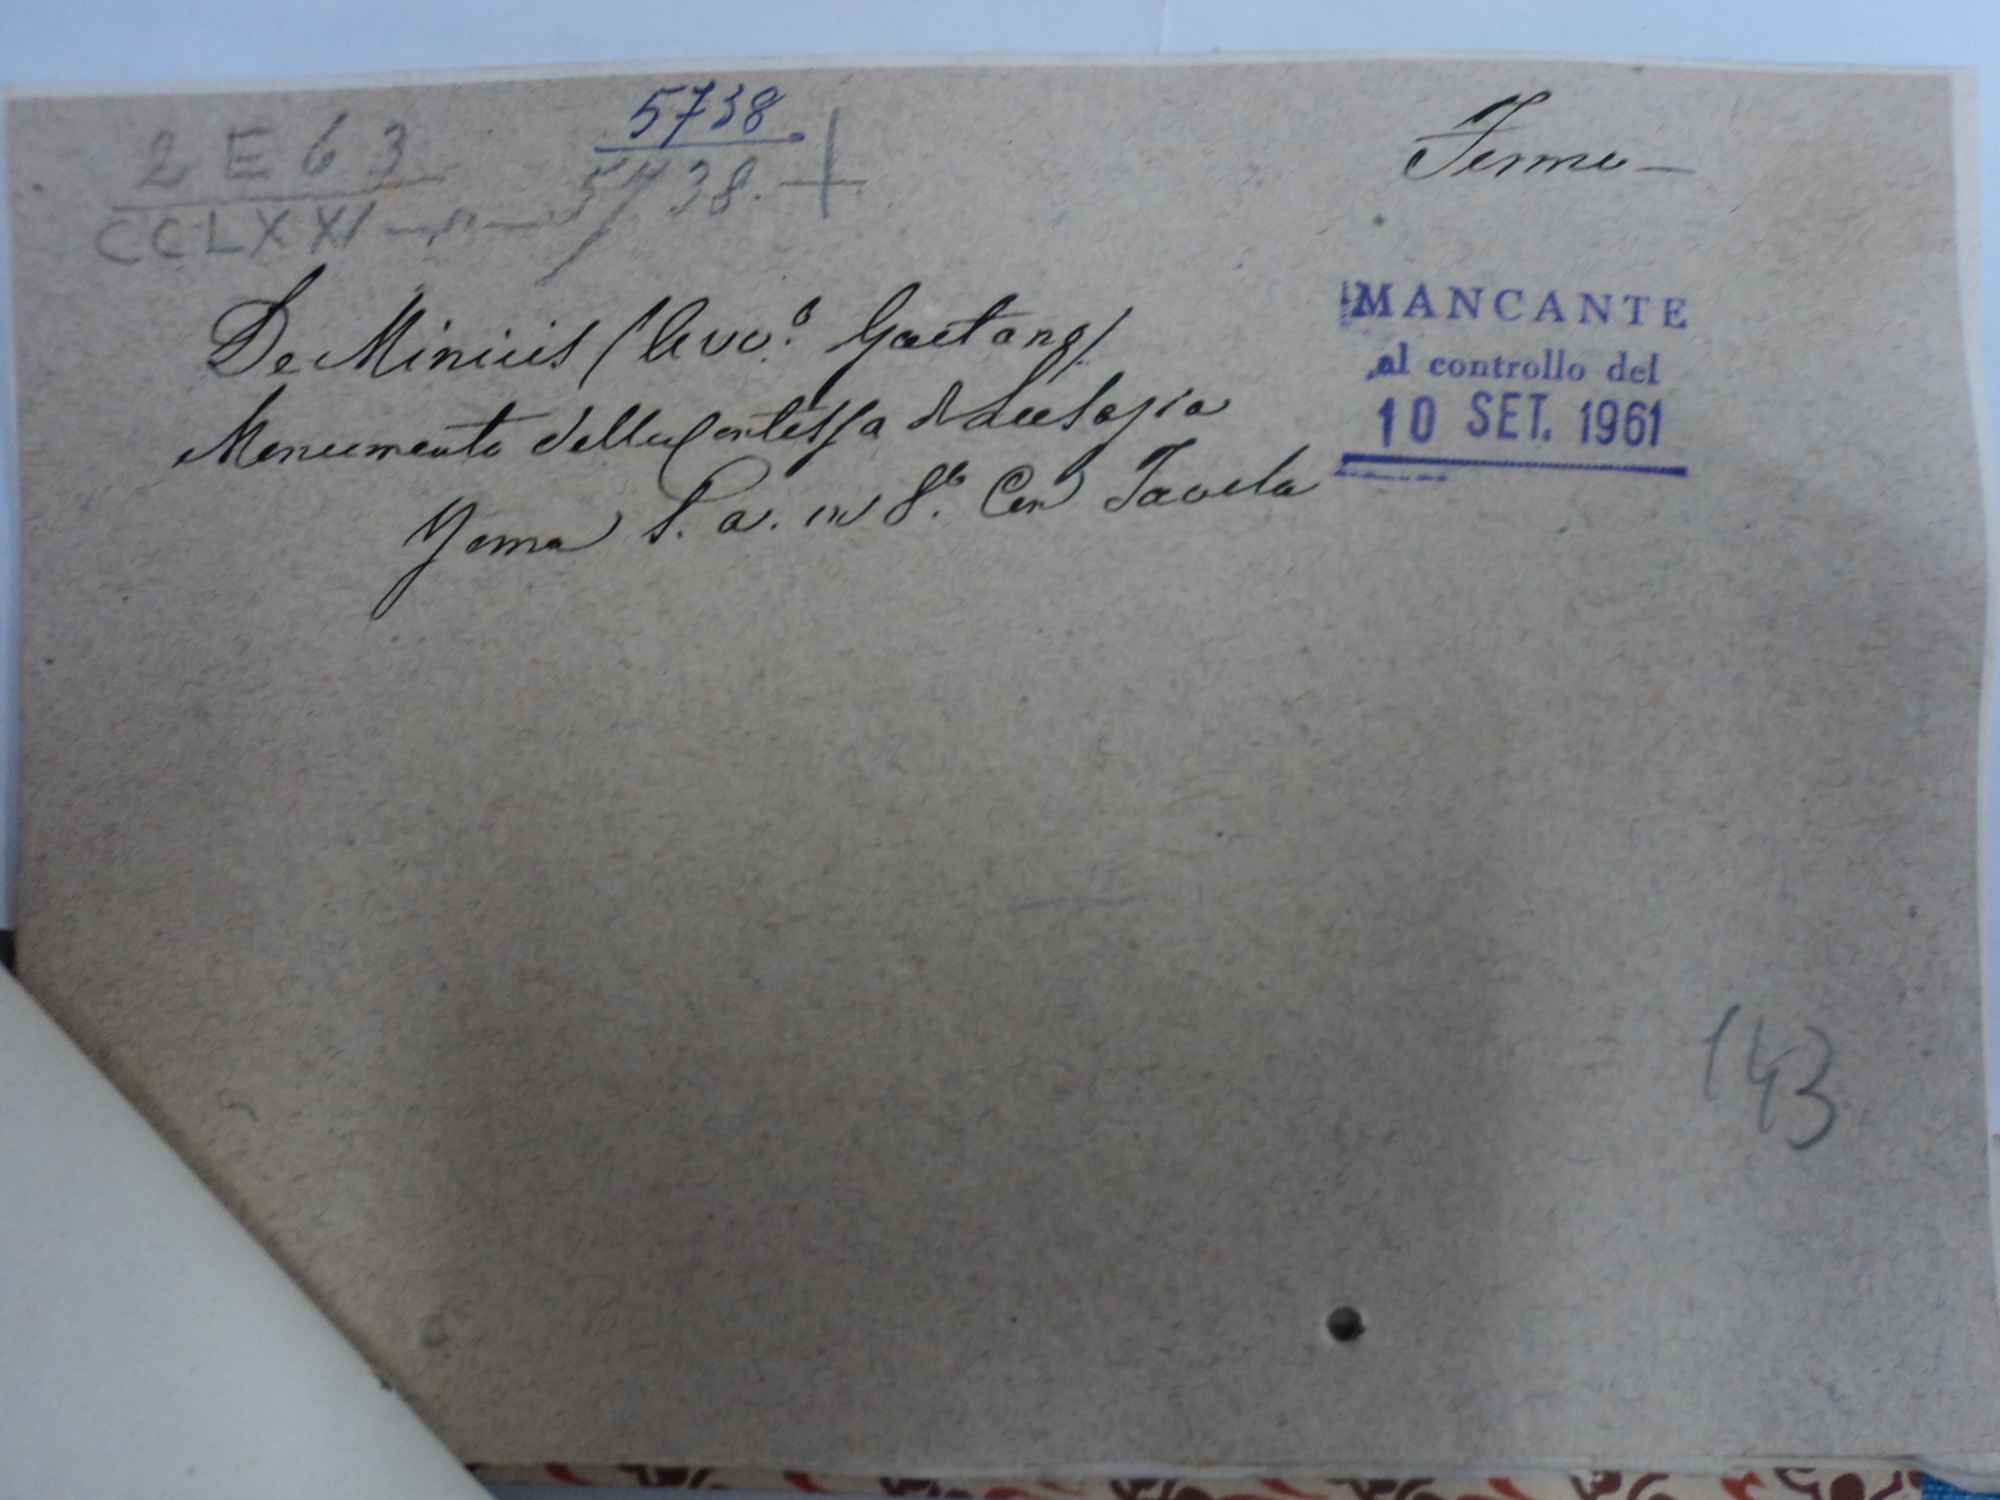 5738
2 E 63
5738. +
CCLXXI — " —
Fermo —
De Minicis (Avv.º Gaetano)
Monumento della Contessa di
Roma S. a. in 8.º Con Tavola
MANCANTE
al controllo del
10 SET. 1961
143